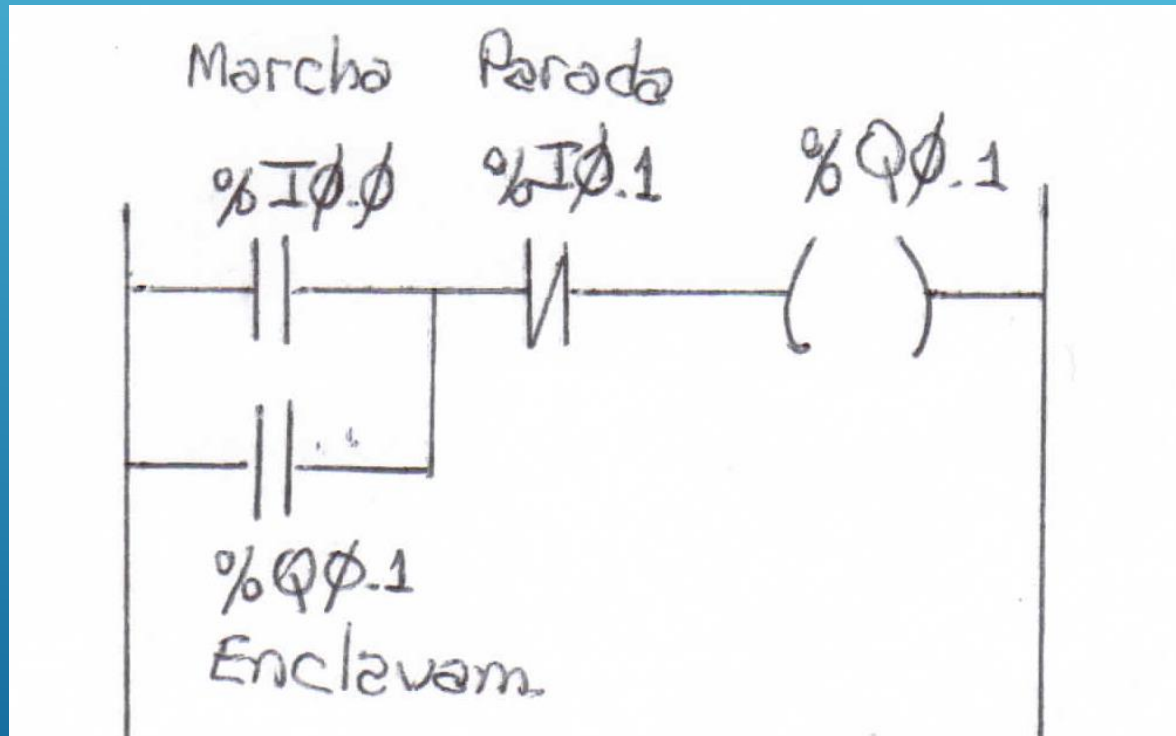 Marcha Parada
%I0.0 %I0.1 %Q0.1
%Q0.1
Enclavam.